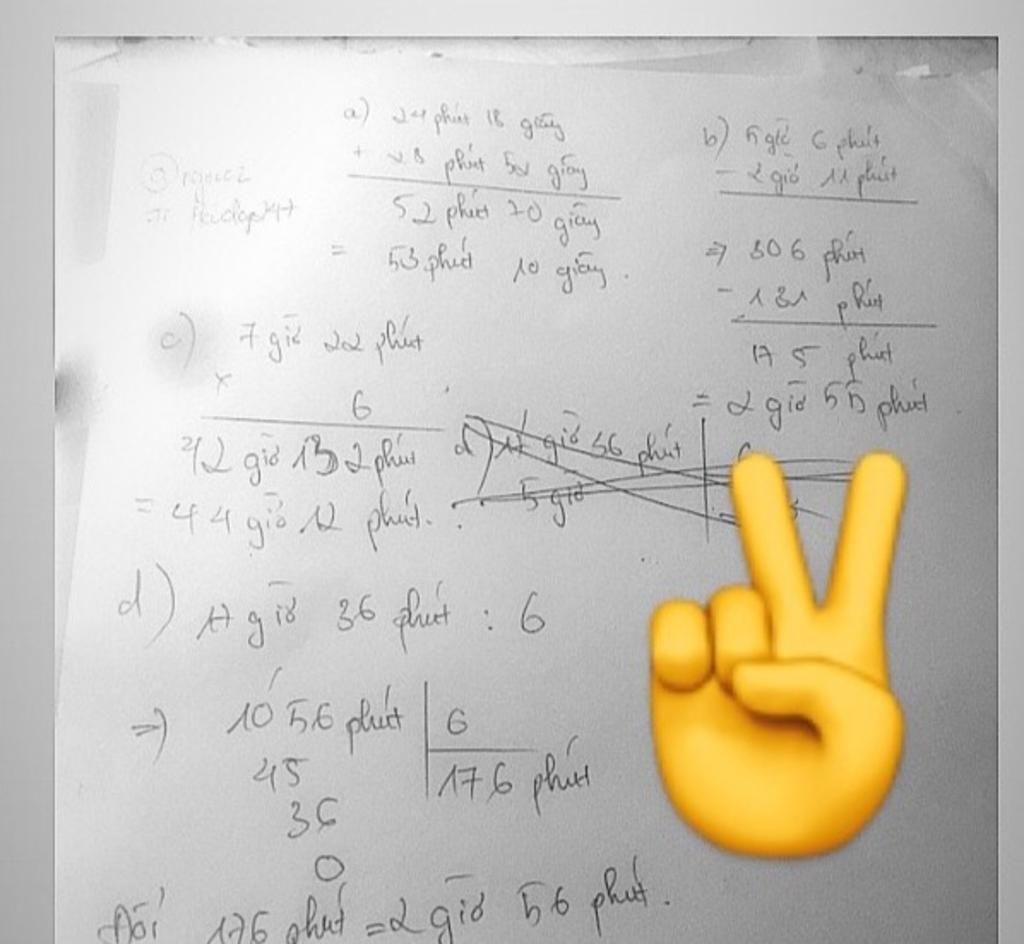 a) 24 phút 18 giây
+ 28 phút 52 giây
52 phút 70 giây
= 53 phút 10 giây.
b) 5 giờ 6 phút
- 2 giờ 11 phút
=> 306 phút
- 131 phút
175 phút
= 2 giờ 55 phút
c) 7 giờ 22 phút
x
6
42 giờ 132 phút
= 44 giờ 12 phút.
d) 17 giờ 36 phút
5 giờ
d) 17 giờ 36 phút : 6
=> 1056 phút 6
45 176 phút
36
0
Đổi 176 phút = 2 giờ 56 phút.